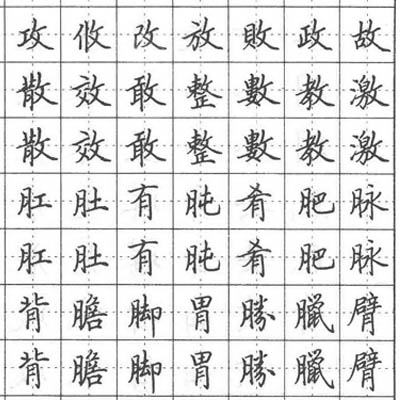 攻 攸 改 放 敗 政 故
散 效 敢 整 數 教 激
散 效 敢 整 數 教 激
肛 肚 有 肫 肴 肥 脉
肛 肚 有 肫 肴 肥 脉
背 膽 脚 胃 勝 臘 臂
背 膽 脚 胃 勝 臘 臂